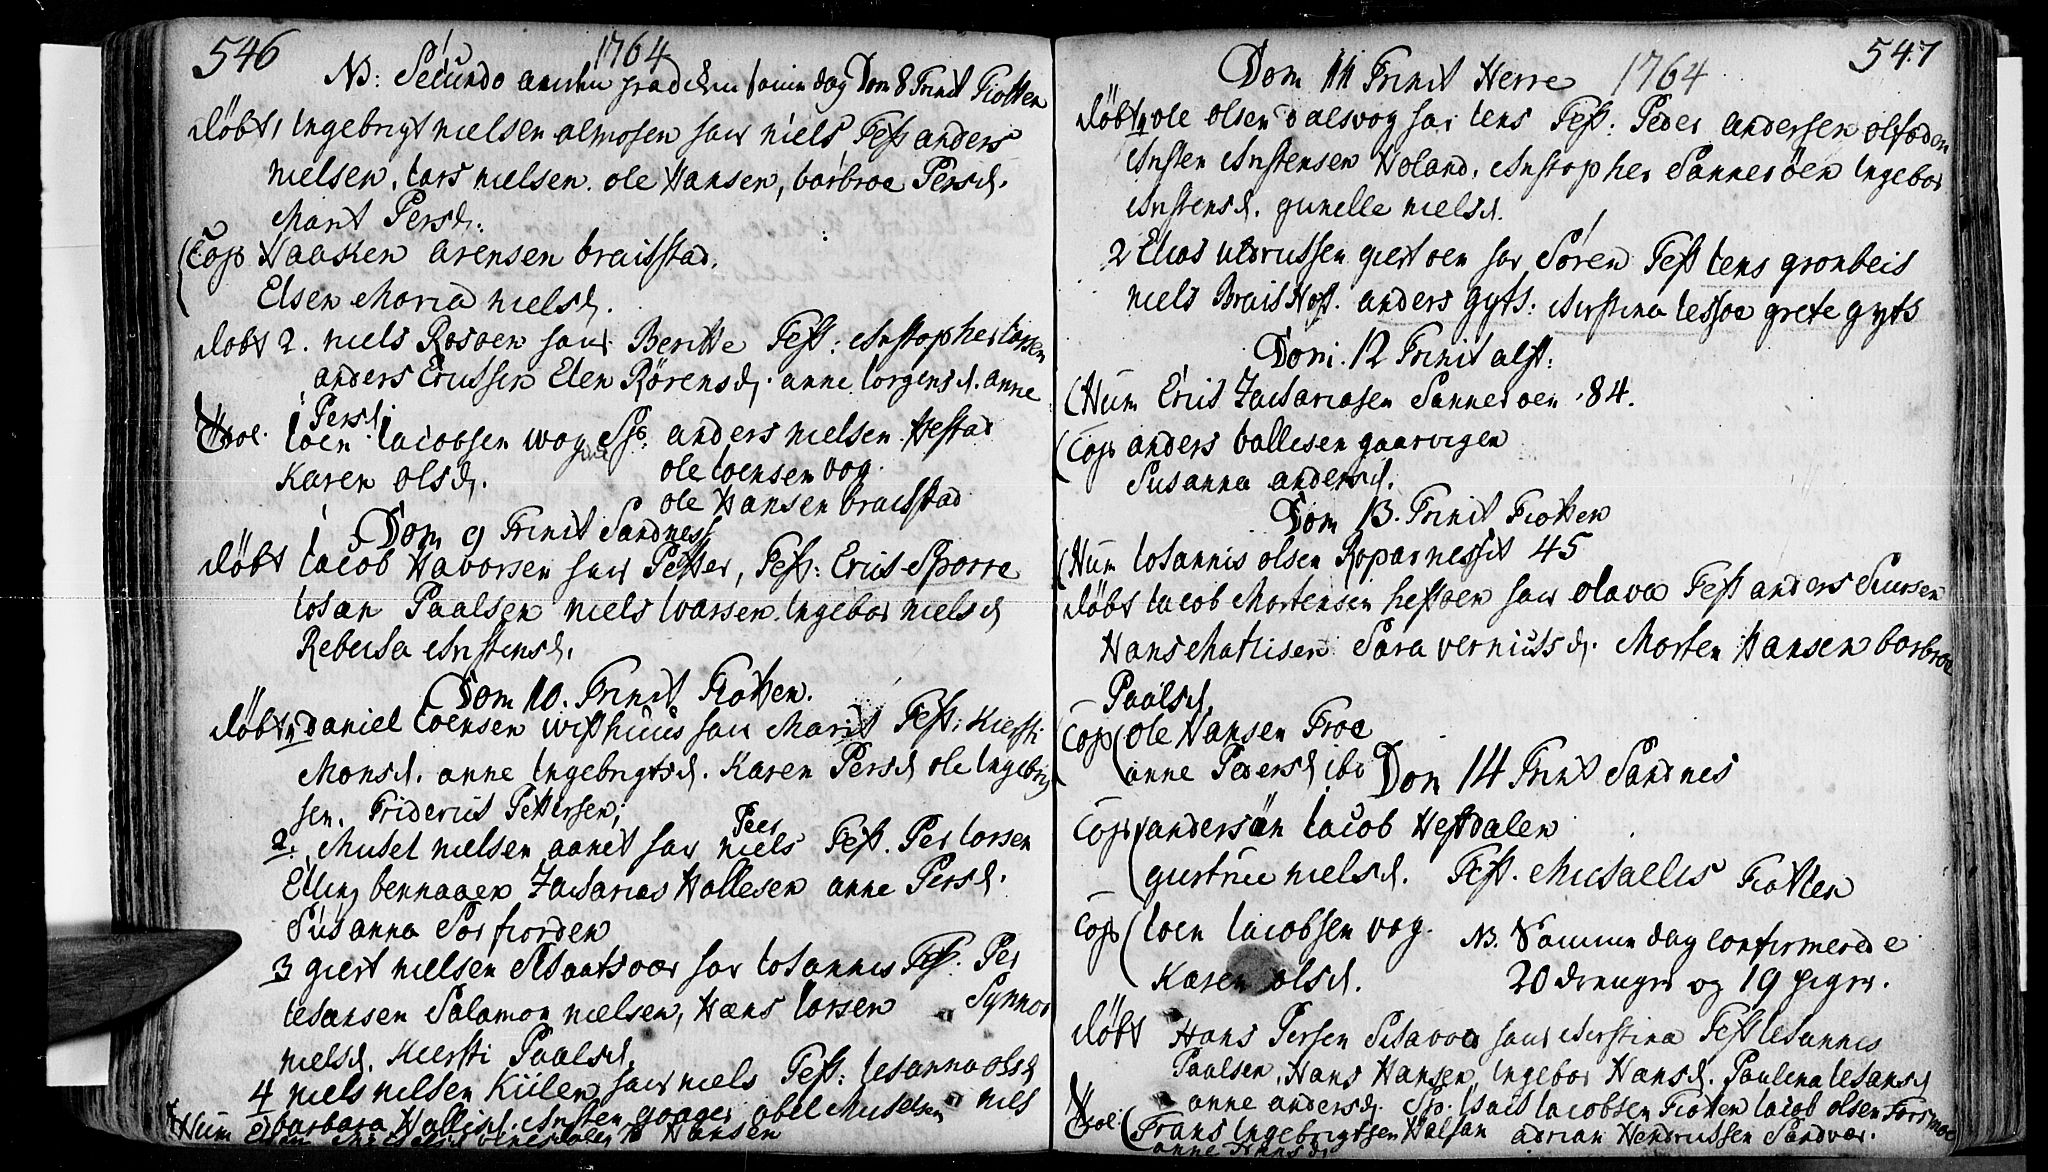 546 1764
NB: Secundo Dom 8 Trinit Fiotten
døbt 1 Ingebrigt nielsen almosen sax niels Test anders
nielsen, lars nielsen. ole Hansen, barbroe Persd.
Marit Persd:
Cop Haaken arensen braisstad,
Elsen Maria nielsd.
døbt 2. niels Rosøen sax Beritte Test: Christopher larsen
anders Ericssen Elen Sørensd. anne Iorgensd. anne
Persd
Trol. Ioen Iacobsen wog Sp: anders nielsen Hestad
Karen olsd. ole Ioensen vog.
ole Hansen braisstad
Dom 9 Trinit Sandness
døbt Iacob Havorsen sax Petter, Test: Eric Sporre
Iohan Paalsen niels Ivarsen. Ingebor nielsd
Rebecka Christensd.
Dom 10. Trinit Fiotten.
døbt 1 Daniel Ioensen wisthuus sax Marit Test: Kiersti
Monsd. anne Ingebrigtsd. Karen Persd ole Ingebrigt
sen. Frideric Pettersen;
Peer
2. Mickel nielsen aanet sax niels Test. Per larsen
Elling bennaaen Zacharias Hallesen anne Persd.
Susanna Sørfiorden
3 giert nielsen Skaatsvær sax Iohannis Test. Per
Iohansen Salamon nielsen, Hans larsen Synnov
nielsd. Kiersti Paalsd.
4 niels nilsen Kiilen sax niels Test: Iohanna olsd
barbara Hallisd. Christen gaager abel Mickelsen niels
Hum Hansen
547
Dom 11 Trinit Herre 1764
døbt 1 ole olsen dalsvog sax Iens Test: Peder andersen olsøden
Christen Christensen Høland, Christopher Sannerøen Ingebor
Christensd. gunelle nielsd.
2 Elias uldricssen giertøen sax Søren Test Iens grønbeis
niels Brais Hof. anders gyts: Christina Iessoe grete gyts
Dom. 12 Trinit alst:
Hum Eric Zachariasen Sannerøen 84.
Cop anders ballesen gaarvigen
Susanna andersd.
Dom 13. Trinit Fiotten
Hum Iohannis olsen Roparnesset 45
døbt Iacob Mortensen hestøen sax olava Test anders Siursen
Hans Mathisen Sara verniccsd. Morten Hansen barbroe
Paalsd.
Cop ole Hansen Froe
anne Pedersd ibi
Dom 14 Trinit Sandnes
Cop anders Iacob Hestdalen
giertrue nielsd. Fest. Michaelis Fiotten
Cop Ioen Iacobsen vog. NB. Samme dag confirmerede
Karen olsd. 20 drenger og 19 piger.
døbt Hans Persen sax Christina Test Iohannis
Paalsen, Hans Hansen, Ingebor Hansd. Paulina Iohansd
anne andersd. Sp. Isach Iacobsen Fiotten Iacob olsen Forsmoe
Trol. Frans Ingebrigtsen Halsan adrian Hendricssen Sandvær.
anne Hansd